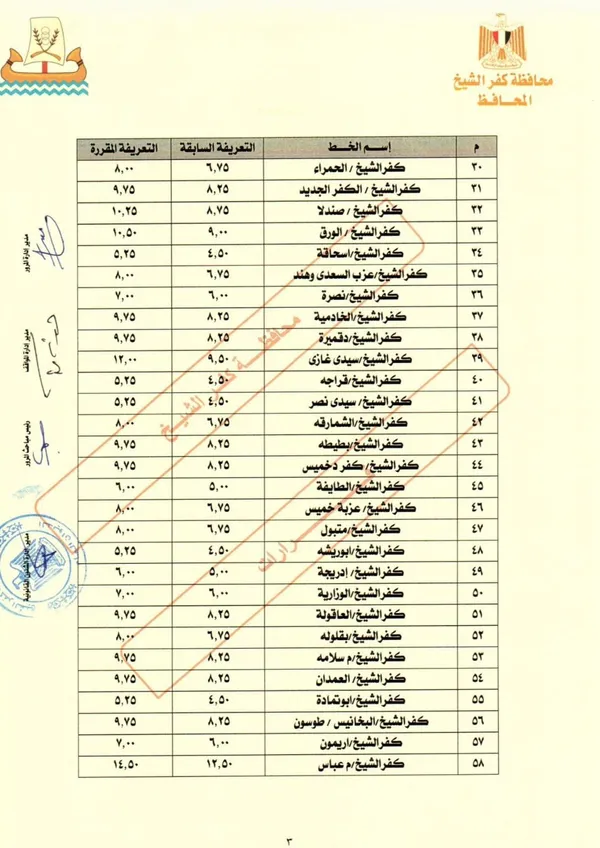 محافظة كفر الشيخ
المحافظ
م إسم الخط التعريفة السابقة التعريفة المقررة
٣٠ كفرالشيخ / الحمراء ٦,٧٥ ٨,٠٠
٣١ كفرالشيخ / الكفر الجديد ٨,٢٥ ٩,٧٥
٣٢ كفرالشيخ/ صندلا ٨,٧٥ ١٠,٢٥
٣٣ كفرالشيخ / الورق ٩,٠٠ ١٠,٥٠
٣٤ كفرالشيخ/اسحاقة ٤,٥٠ ٥,٢٥
٣٥ كفرالشيخ/عزب السعدى وهند ٦,٧٥ ٨,٠٠
٣٦ كفرالشيخ/نصرة ٦,٠٠ ٧,٠٠
٣٧ كفرالشيخ/الخادمية ٨,٢٥ ٩,٧٥
٣٨ كفرالشيخ/دقميرة ٨,٢٥ ٩,٧٥
٣٩ كفرالشيخ/سيدى غازى ٩,٥٠ ١٢,٠٠
٤٠ كفرالشيخ/قراجه ٤,٥٠ ٥,٢٥
٤١ كفرالشيخ/ سيدى نصر ٤,٥٠ ٥,٢٥
٤٢ كفرالشيخ/الشمارقه ٦,٧٥ ٨,٠٠
٤٣ كفرالشيخ/بطيطه ٨,٢٥ ٩,٧٥
٤٤ كفرالشيخ/ كفر دخميس ٨,٢٥ ٩,٧٥
٤٥ كفرالشيخ/الطايفة ٥,٠٠ ٦,٠٠
٤٦ كفرالشيخ/ عزبة خميس ٦,٧٥ ٨,٠٠
٤٧ كفرالشيخ/متبول ٦,٧٥ ٨,٠٠
٤٨ كفرالشيخ/ابوريشه ٤,٥٠ ٥,٢٥
٤٩ كفرالشيخ/ إدريجة ٥,٠٠ ٦,٠٠
٥٠ كفرالشيخ/الوزارية ٦,٠٠ ٧,٠٠
٥١ كفرالشيخ/العاقولة ٨,٢٥ ٩,٧٥
٥٢ كفرالشيخ/بقلوله ٦,٧٥ ٨,٠٠
٥٣ كفرالشيخ/م سلامه ٨,٢٥ ٩,٧٥
٥٤ كفرالشيخ/ العمدان ٨,٢٥ ٩,٧٥
٥٥ كفرالشيخ/ابوتمادة ٤,٥٠ ٥,٢٥
٥٦ كفرالشيخ/البخانيس / طوسون ٨,٢٥ ٩,٧٥
٥٧ كفرالشيخ/اريمون ٦,٠٠ ٧,٠٠
٥٨ كفرالشيخ/م عباس ١٢,٥٠ ١٤,٥٠
محافظة كفر الشيخ
مدير إدارة المرور
مدير إدارة المواقف
رئيس مباحث المرور
٣